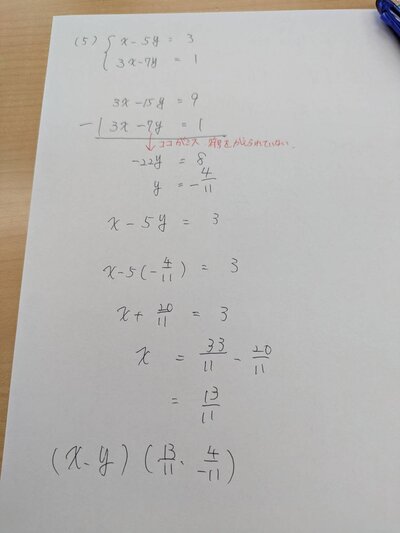 (5) { x - 5y = 3
3x - 7y = 1
3x - 15y = 9
- ) 3x - 7y = 1
ココがミス 符号をかえられていない。
-22y = 8
y = -4/11
x - 5y = 3
x - 5(-4/11) = 3
x + 20/11 = 3
x = 33/11 - 20/11
= 13/11
(x, y) (13/11, 4/-11)